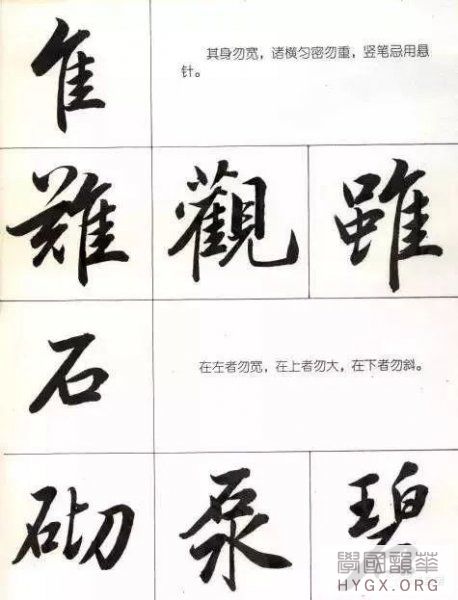 隹
其身勿宽，诸横匀密勿重，竖笔忌用悬
针。
難 觀 雖
石
在左者勿宽，在上者勿大，在下者勿斜。
砌 泵 碧
學國韻華
HYGX.ORG